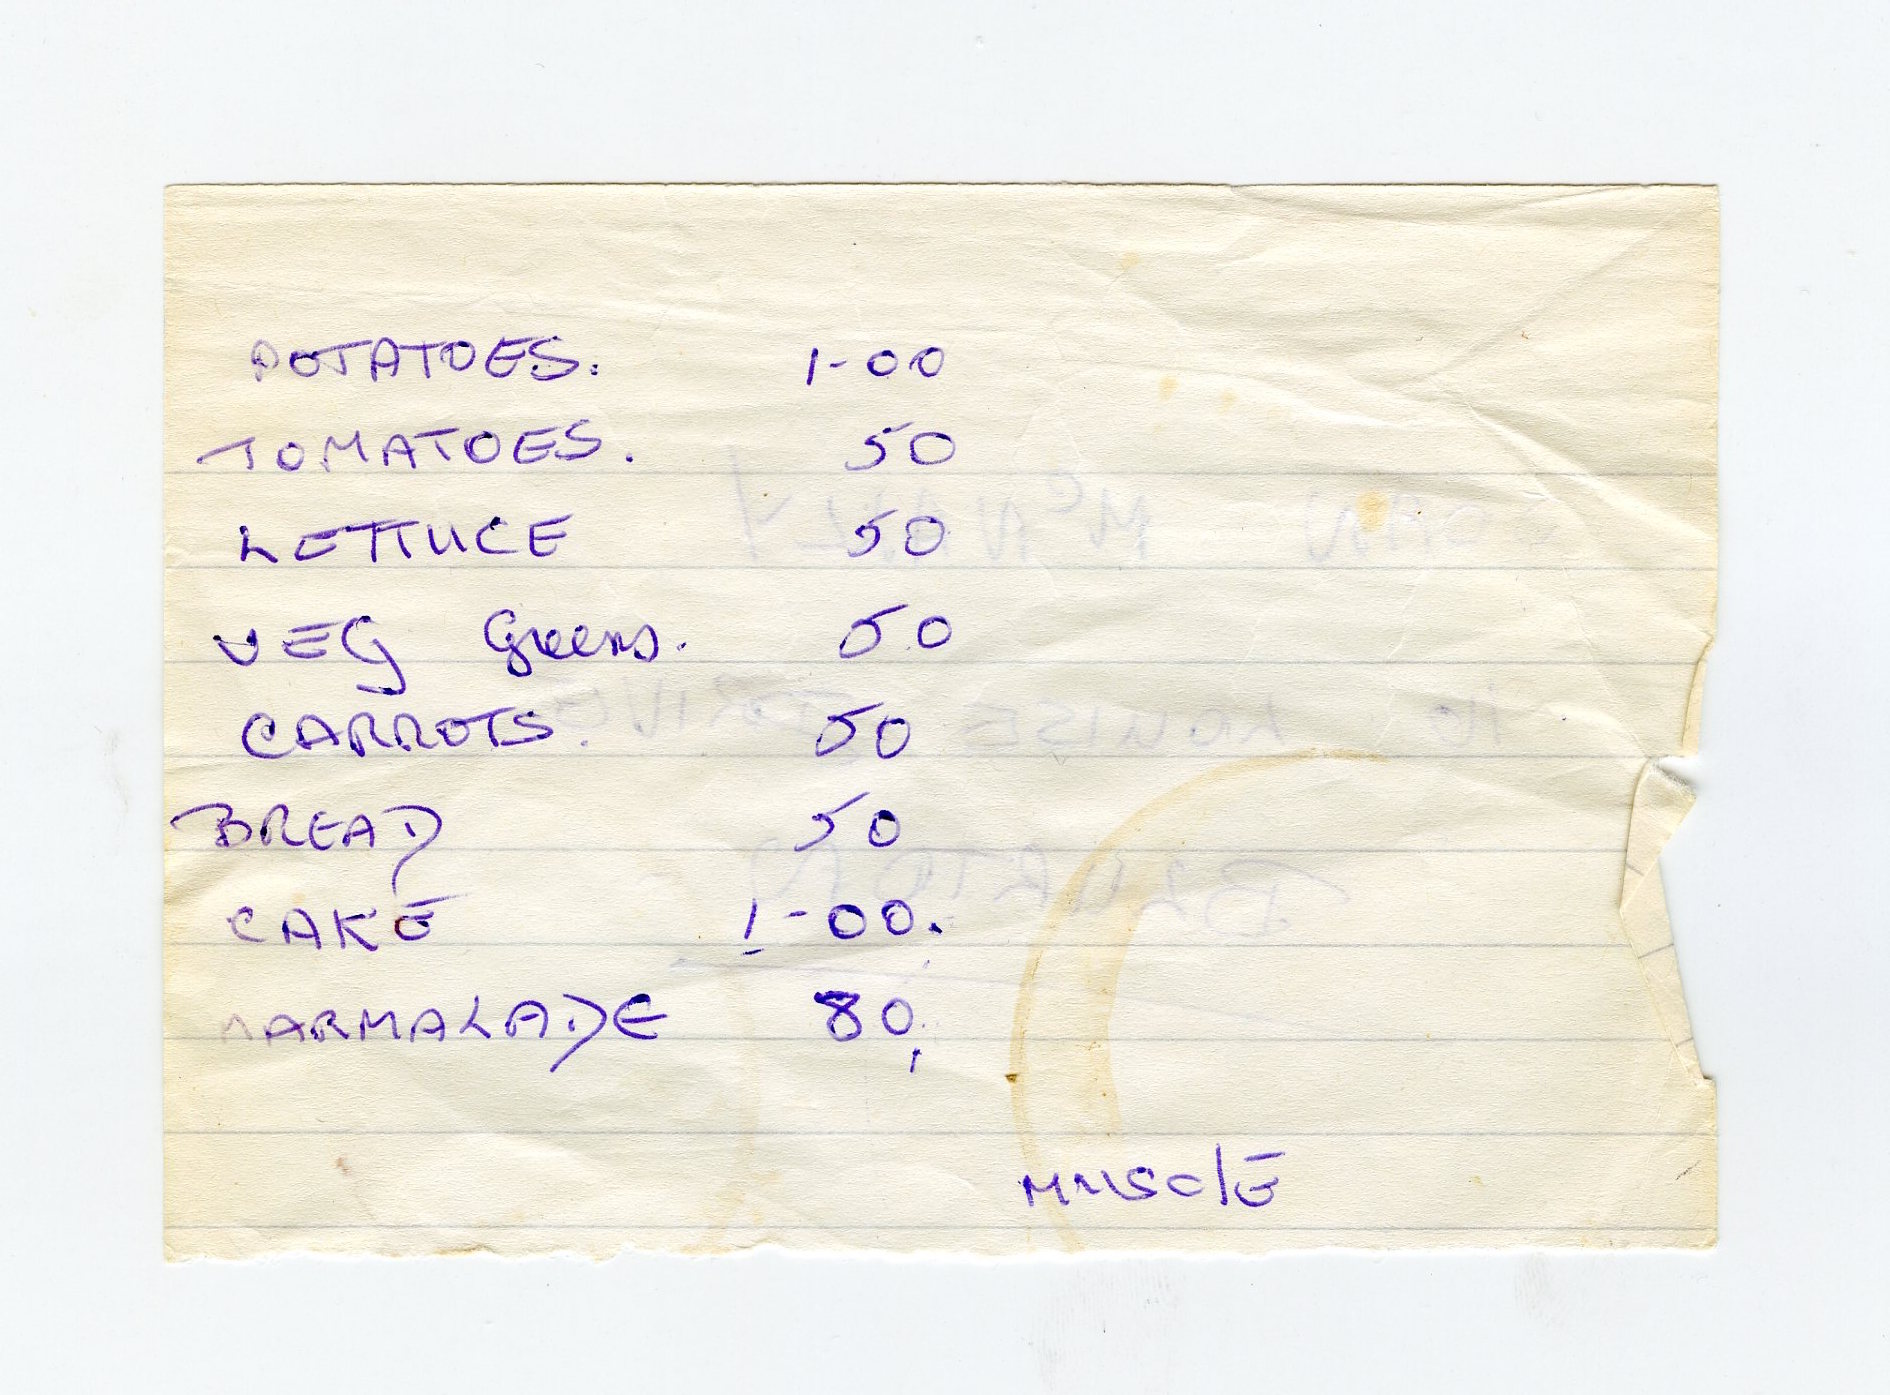 POTATOES. 1-00
TOMATOES. 50
LETTUCE 50
VEG Greens. 50
CARROTS. 50
BREAD 50
CAKE 1-00.
MARMALADE 80
MUSclE